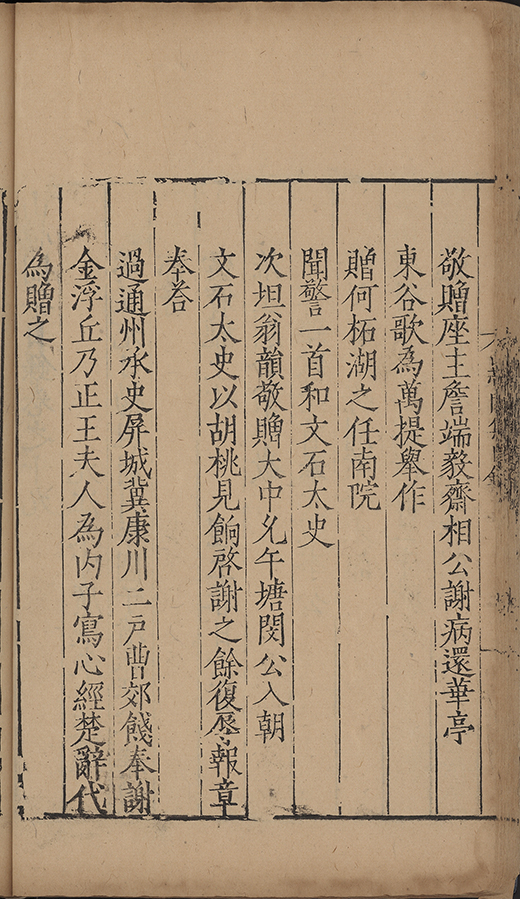 敬贈座主詹端毅齋相公謝病還華亭
東谷歌為萬提舉作
贈何柘湖之任南院
聞警一首和文石太史
次坦翁韻敬贈大中丞午塘閔公入朝
文石太史以胡桃見餉啓謝之餘復辱報章
奉荅
過通州承史屏城冀康川二戶曹郊餞奉謝
金浮丘乃正王夫人為内子寫心經楚辭代
為贈之